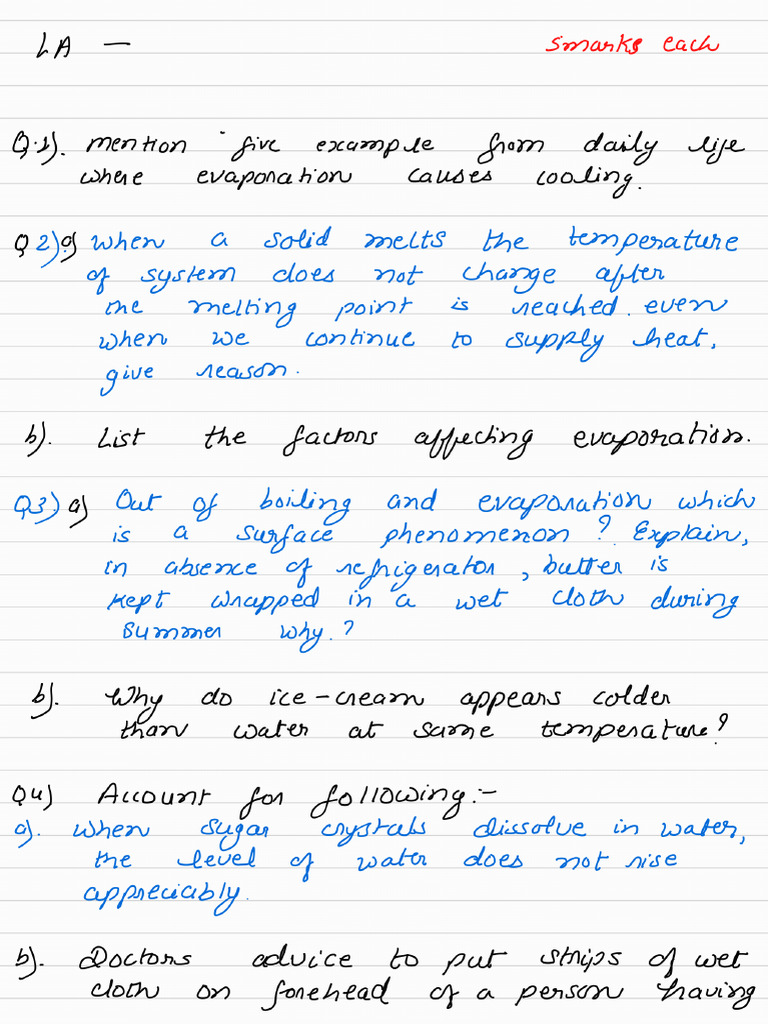 LA — 5marks each
Q.1). mention five example from daily life
where evaporation causes cooling.
Q 2) a) when a solid melts the temperature
of system does not change after
the melting point is reached. even
when we continue to supply heat,
give reason.
b). List the factors affecting evaporation.
Q3) a) Out of boiling and evaporation which
is a surface phenomenon? Explain,
in absence of refrigerator, butter is
kept wrapped in a wet cloth during
summer why.?
b). Why do ice-cream appears colder
than water at same temperature?
Q4) Account for following:-
a). when sugar crystals dissolve in water,
the level of water does not rise
appreciably.
b). Doctors advice to put strips of wet
cloth on forehead of a person having